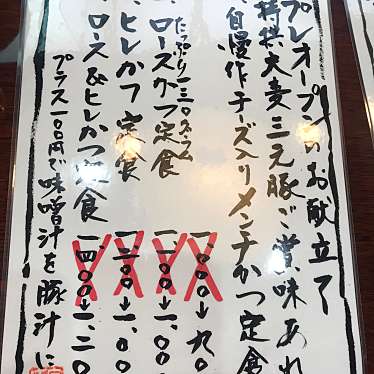 プレオープンのお献立て
特撰大麦三元豚ご賞味あれ
・自慢作チーズ入りメンチかつ定食 一、〇〇〇→九〇
たっぷり一三〇グラム
・ロースかつ定食 一、二〇〇→一、〇〇
・ヒレかつ定食 一、三〇〇→一、〇〇
・ロース&ヒレかつ定食 一、四〇〇→一、二〇
プラス一〇〇円で味噌汁を豚汁に